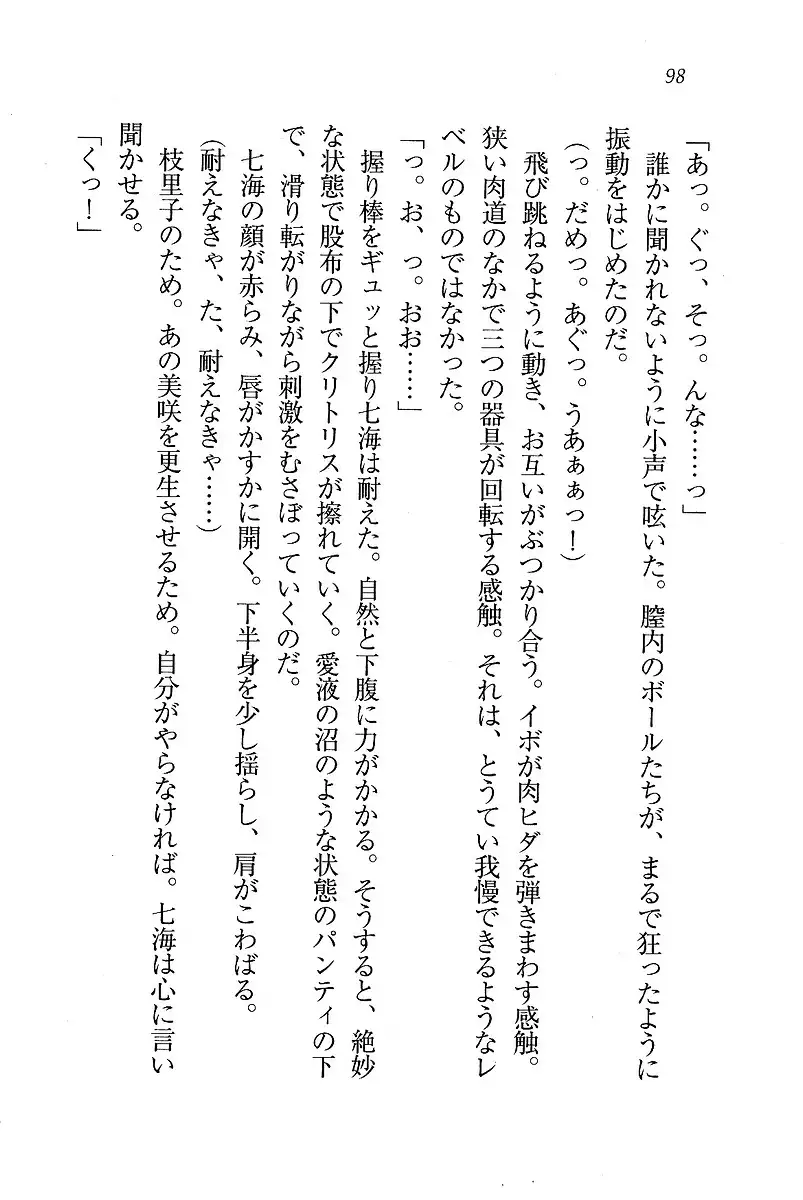 98
「あっ。ぐっ、そっ。んな……っ」
誰かに聞かれないように小声で呟いた。膣内のボールたちが、まるで狂ったように
振動をはじめたのだ。
(っ。だめっ。あぐっ。うあぁぁっ！)
飛び跳ねるように動き、お互いがぶつかり合う。イボが肉ヒダを弾きまわす感触。
狭い肉道のなかで三つの器具が回転する感触。それは、とうてい我慢できるようなレ
ベルのものではなかった。
「っ。お、っ。おお……」
握り棒をギュッと握り七海は耐えた。自然と下腹に力がかかる。そうすると、絶妙
な状態で股布の下でクリトリスが擦れていく。愛液の沼のような状態のパンティの下
で、滑り転がりながら刺激をむさぼっていくのだ。
七海の顔が赤らみ、唇がかすかに開く。下半身を少し揺らし、肩がこわばる。
(耐えなきゃ、た、耐えなきゃ……)
枝里子のため。あの美咲を更生させるため。自分がやらなければ。七海は心に言い
聞かせる。
「くっ！」